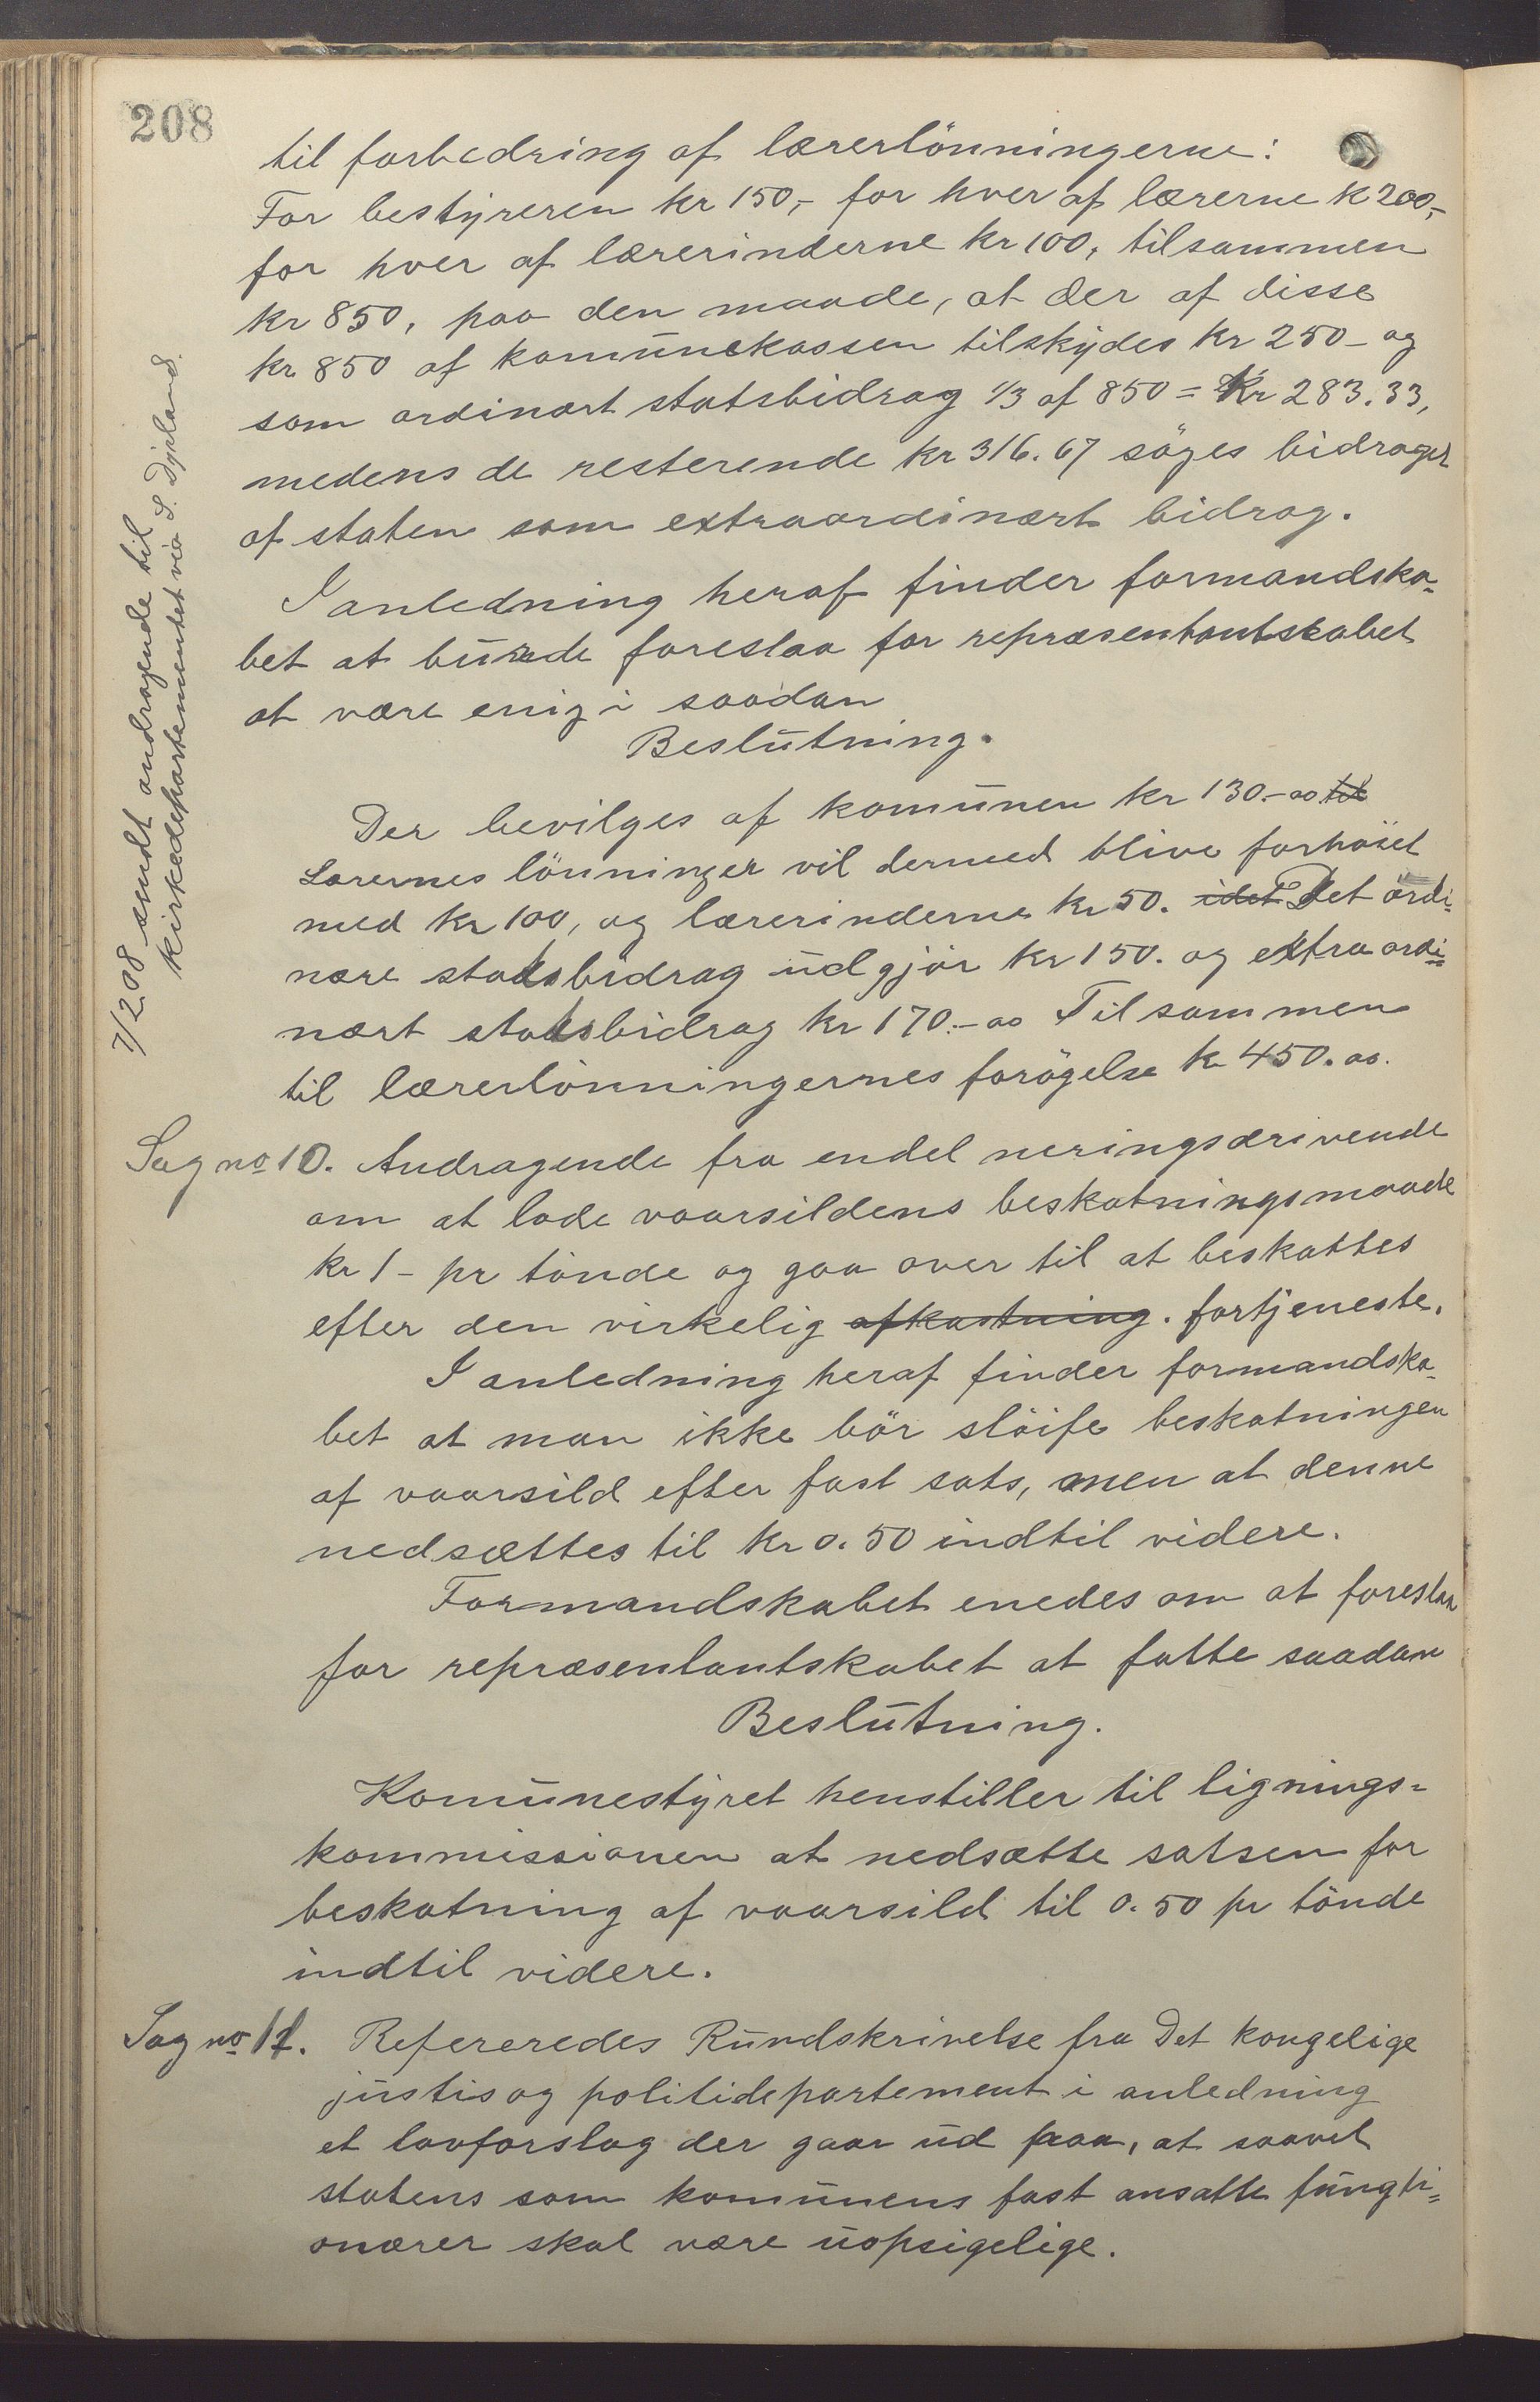 208
til forbedring af lærerlönningerne:
For bestyreren kr 150,- for hver af lærerne k 200,-
for hver af lærerinderne kr 100, tilsammen
kr 850, paa den maade, at der af disse
kr 850 af komunekassen tilskydes kr 250 - og
som ordinært statsbidrag 1/3 af 850 = Kr 283.33,
medens de resterende kr 316.67 söges bidraget
af staten som extraordinært bidrag.
I anledning heraf finder formandska-
bet at burde foreslaa for repræsentantskabet
at være enig i saadan
Beslutning.
Der bevilges af komunen kr 130.-oo til
Lærernes lönninger vil dermed blive forhöiet
med kr 100, og lærerinderne kr 50. idet Det ordi-
nære statsbidrag udgjör kr 150. og extraordi=
nært statsbidrag kr 170.-oo Tilsammen
til lærerlönningernes forögelse k 450.oo.
7/2 08 sendt andragende til
kirkedepartementet via S. Dyrland.
Sag no 10. Andragende fra endel neringsdrivende
om at lade vaarsildens beskatningsmaade
kr 1 - pr tönde og gaa over til at beskattes
efter den virkelig afkastning. fortjeneste.
I anledning heraf finder formandska-
bet at man ikke bör slöife beskatningen
af vaarsild efter fast sats, men at denne
nedsættes til kr 0.50 indtil videre.
Formandskabet enedes om at foreslaa
for repræsentantskabet at fatte saadan
Beslutning.
Komunestyret henstiller til lignings=
kommissionen at nedsætte satsen for
beskatning af vaarsild til 0.50 pr tönde
indtil videre.
Sag no 11. Refereredes Rundskrivelse fra Det kongelige
justis og politidepartement i anledning
et lovforslag der gaar ud paa, at saavel
statens som komunens fast ansatte fungti=
onærer skal være uopsigelige.